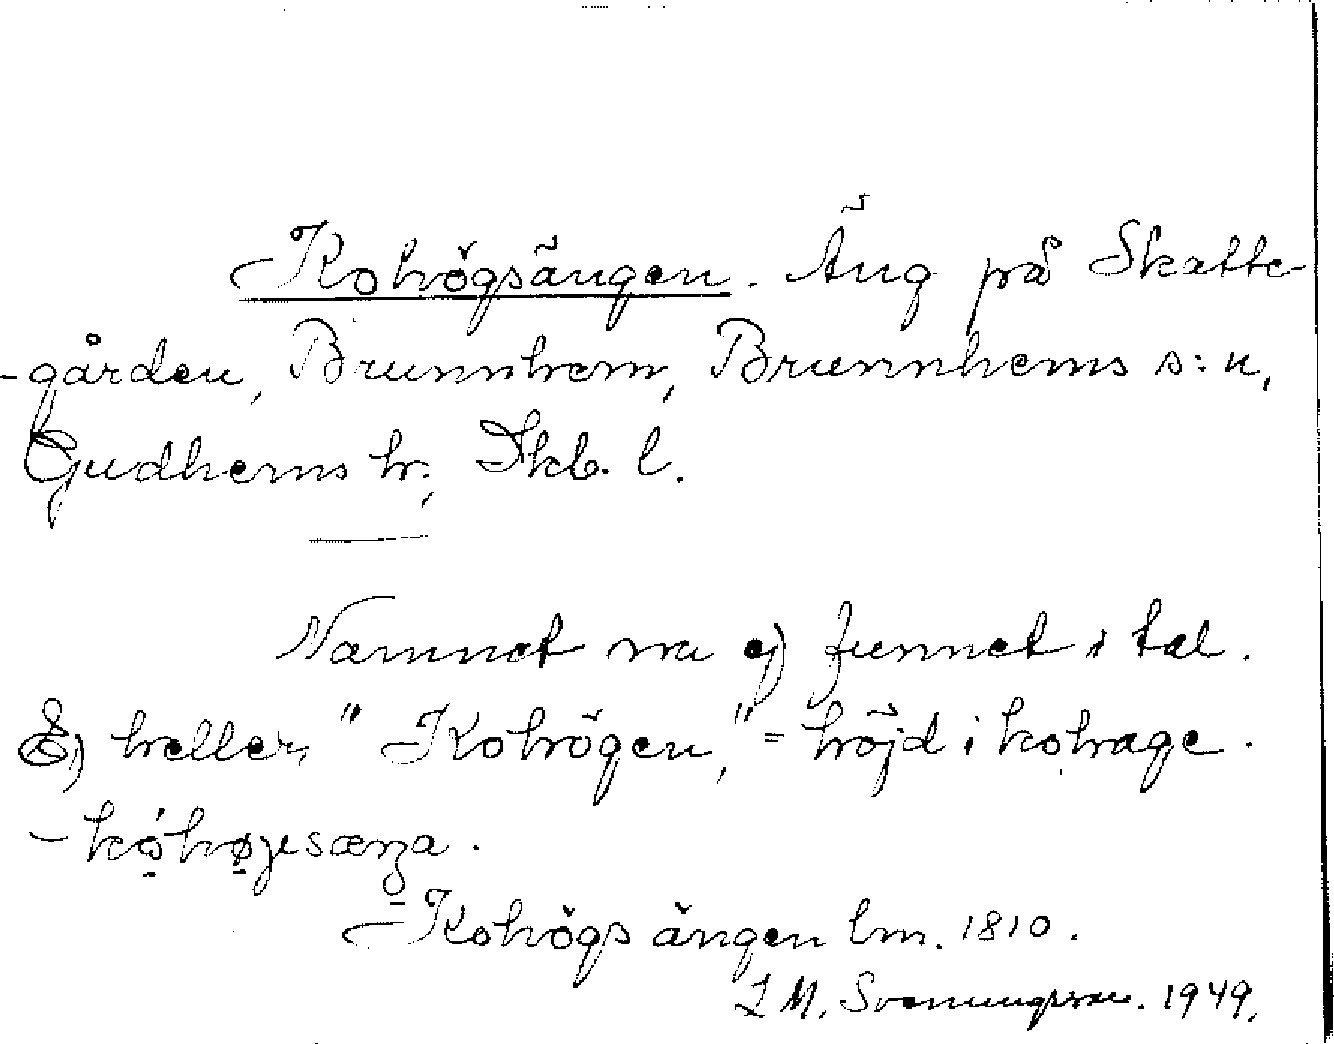 Kohögsängen. Äng på Skatte-
-gården, Brunnhem, Brunnhems s:n,
Gudhems hr., Skb. l.
Namnet nu ej funnet i tal.
Ej heller "Kohögen," = höjd i kohage.
- Kohögs ängen lm. 1810.
L M. Svenungsson. 1949.